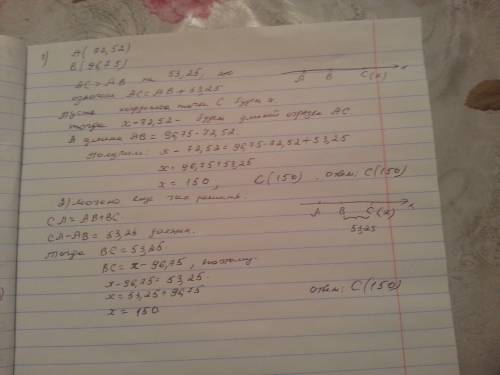 1) A(72,52)
B(96,75)
AC > AB на 53,25, это
означает AC = AB + 53,25
A B C(x) x
Пусть координата точки C будет x,
тогда x - 72,52 - будет длиной отрезка AC.
а длина AB = 96,75 - 72,52.
Получим: x - 72,52 = 96,75 - 72,52 + 53,25
x = 96,75 + 53,25
x = 150, C(150). Ответ: C(150)
2) Можно еще так решить:
CA = AB + BC
A B C(x) x
53,25
CA - AB = 53,25
Тогда BC = 53,25.
BC = x - 96,75, поэтому
x - 96,75 = 53,25.
x = 53,25 + 96,75
Ответ: C(150)
x = 150